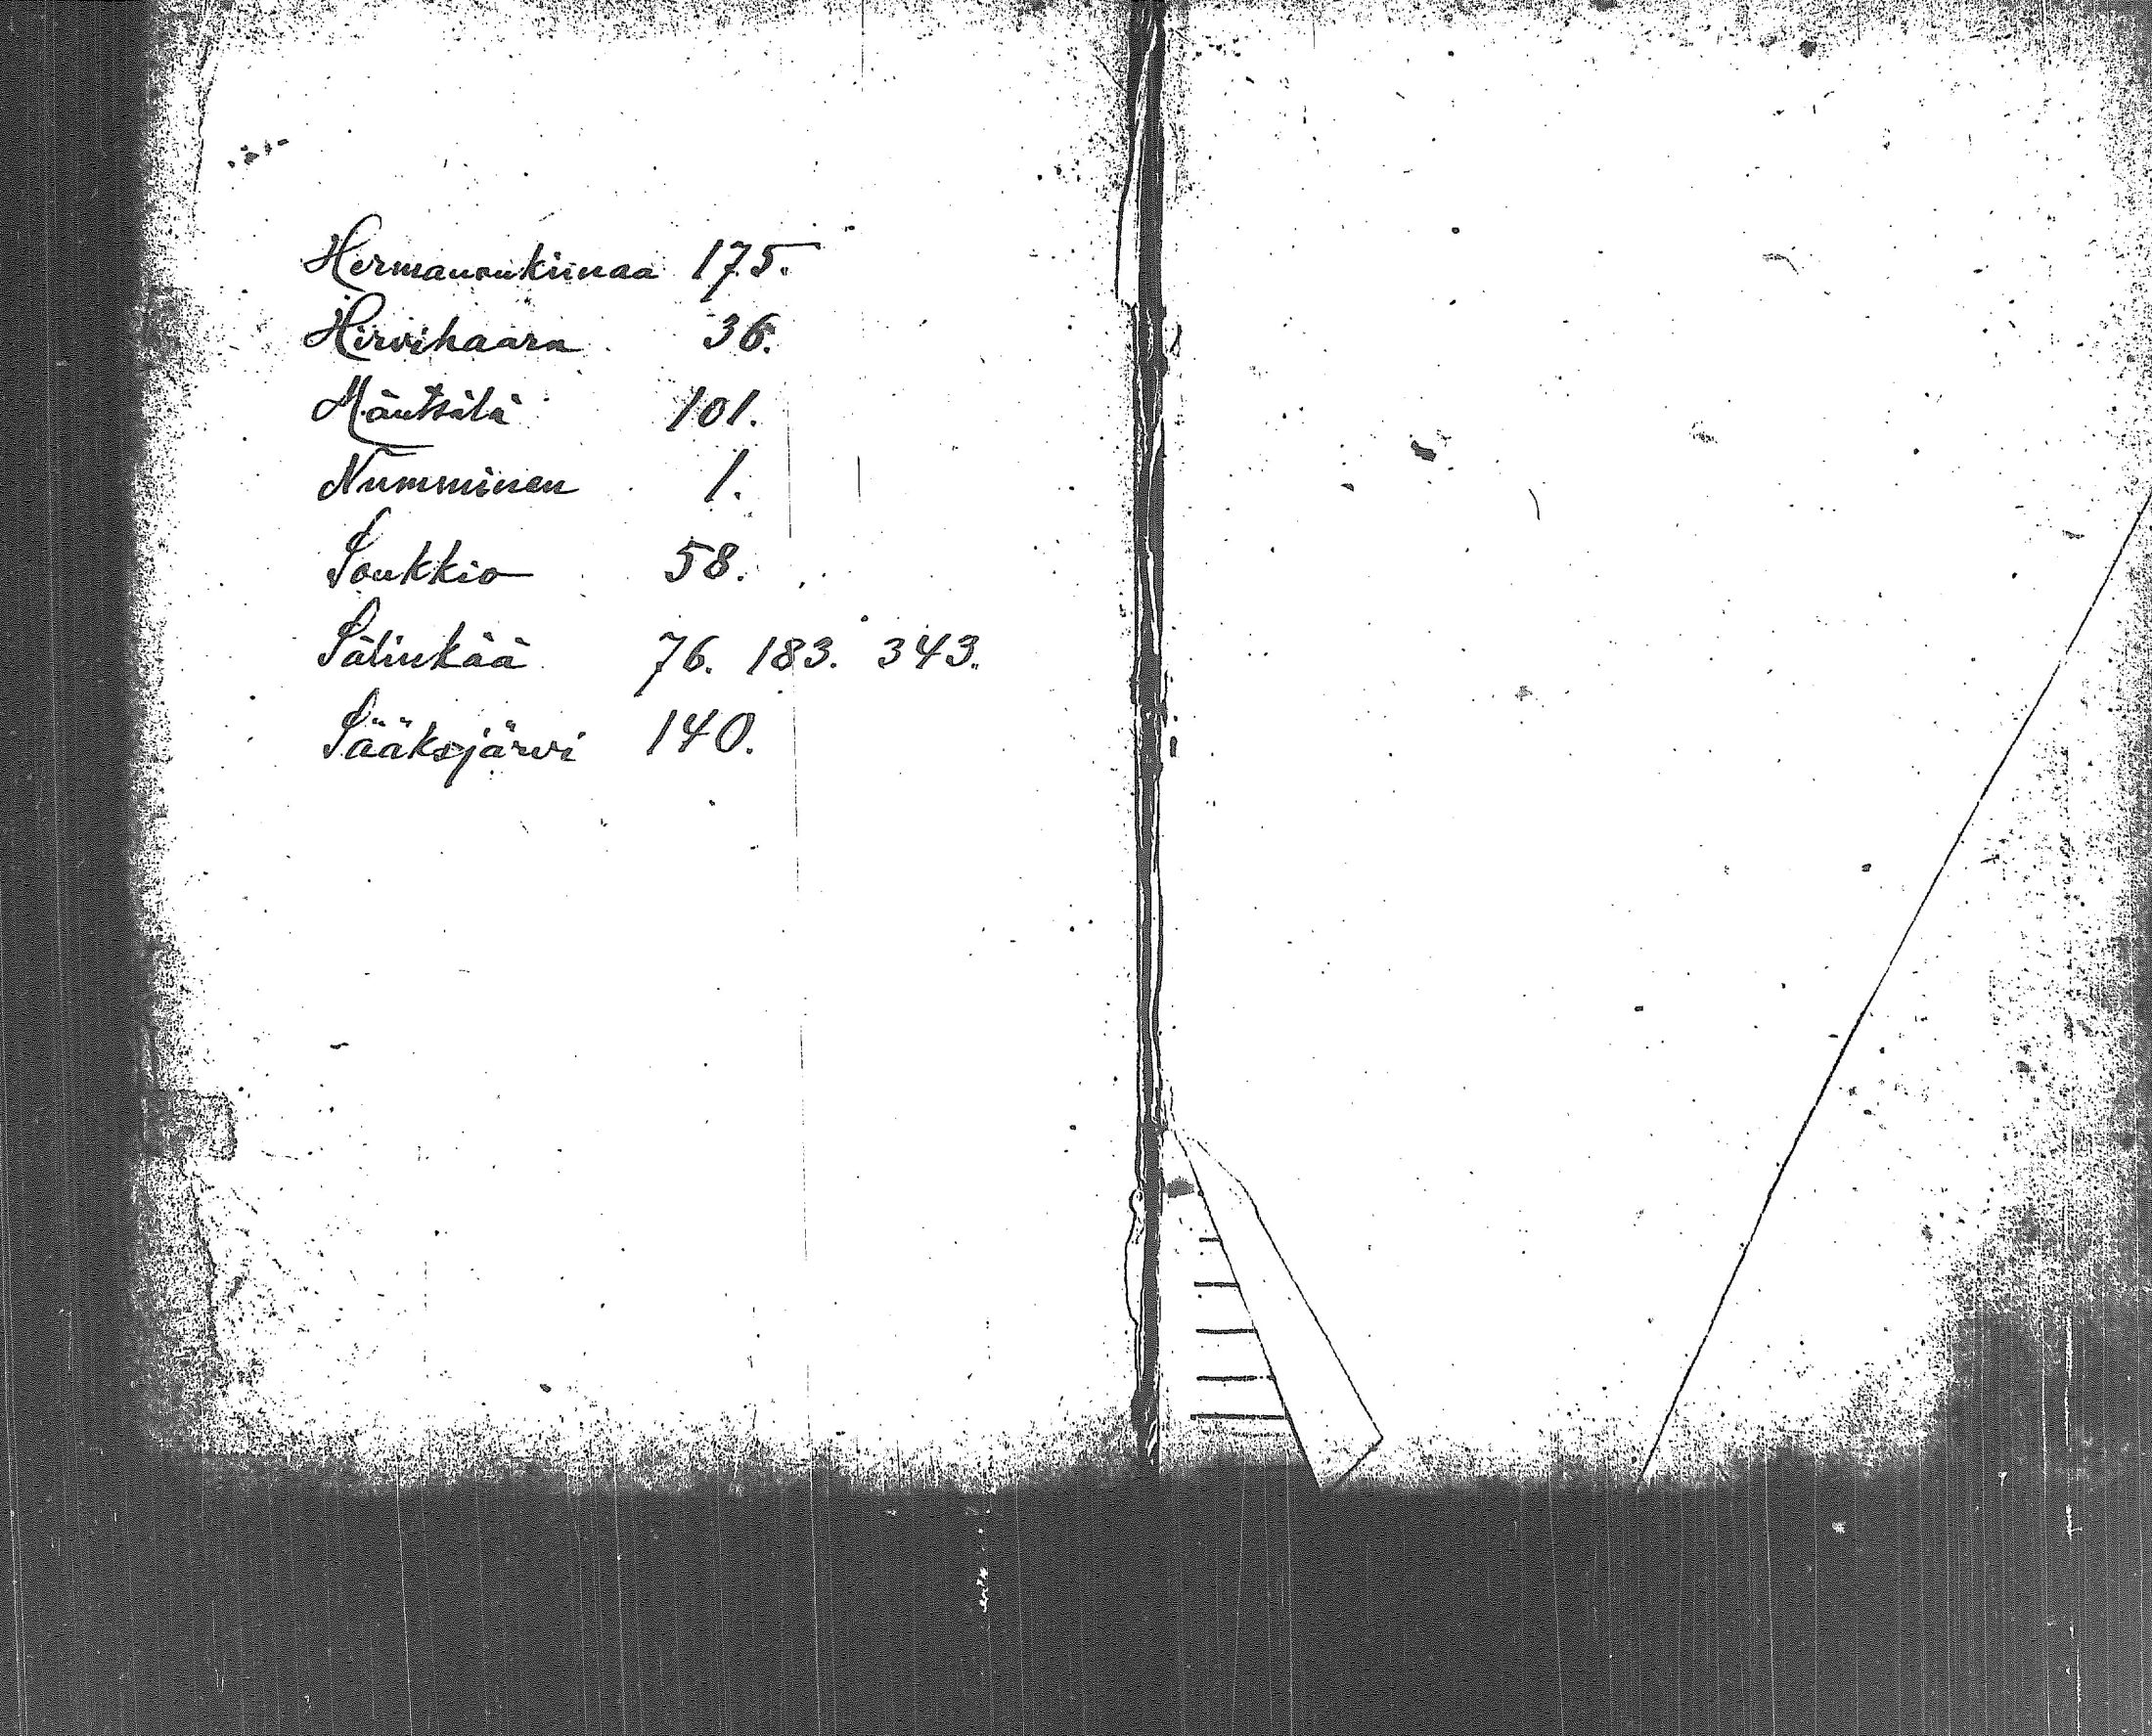 Hermanonkiinaa 175.
Hirvihaara 36.
Mäntsälä 101.
Numminen 1.
Soukkio 58.
Sälinkää 76. 183. 343.
Sääksjärvi 140.